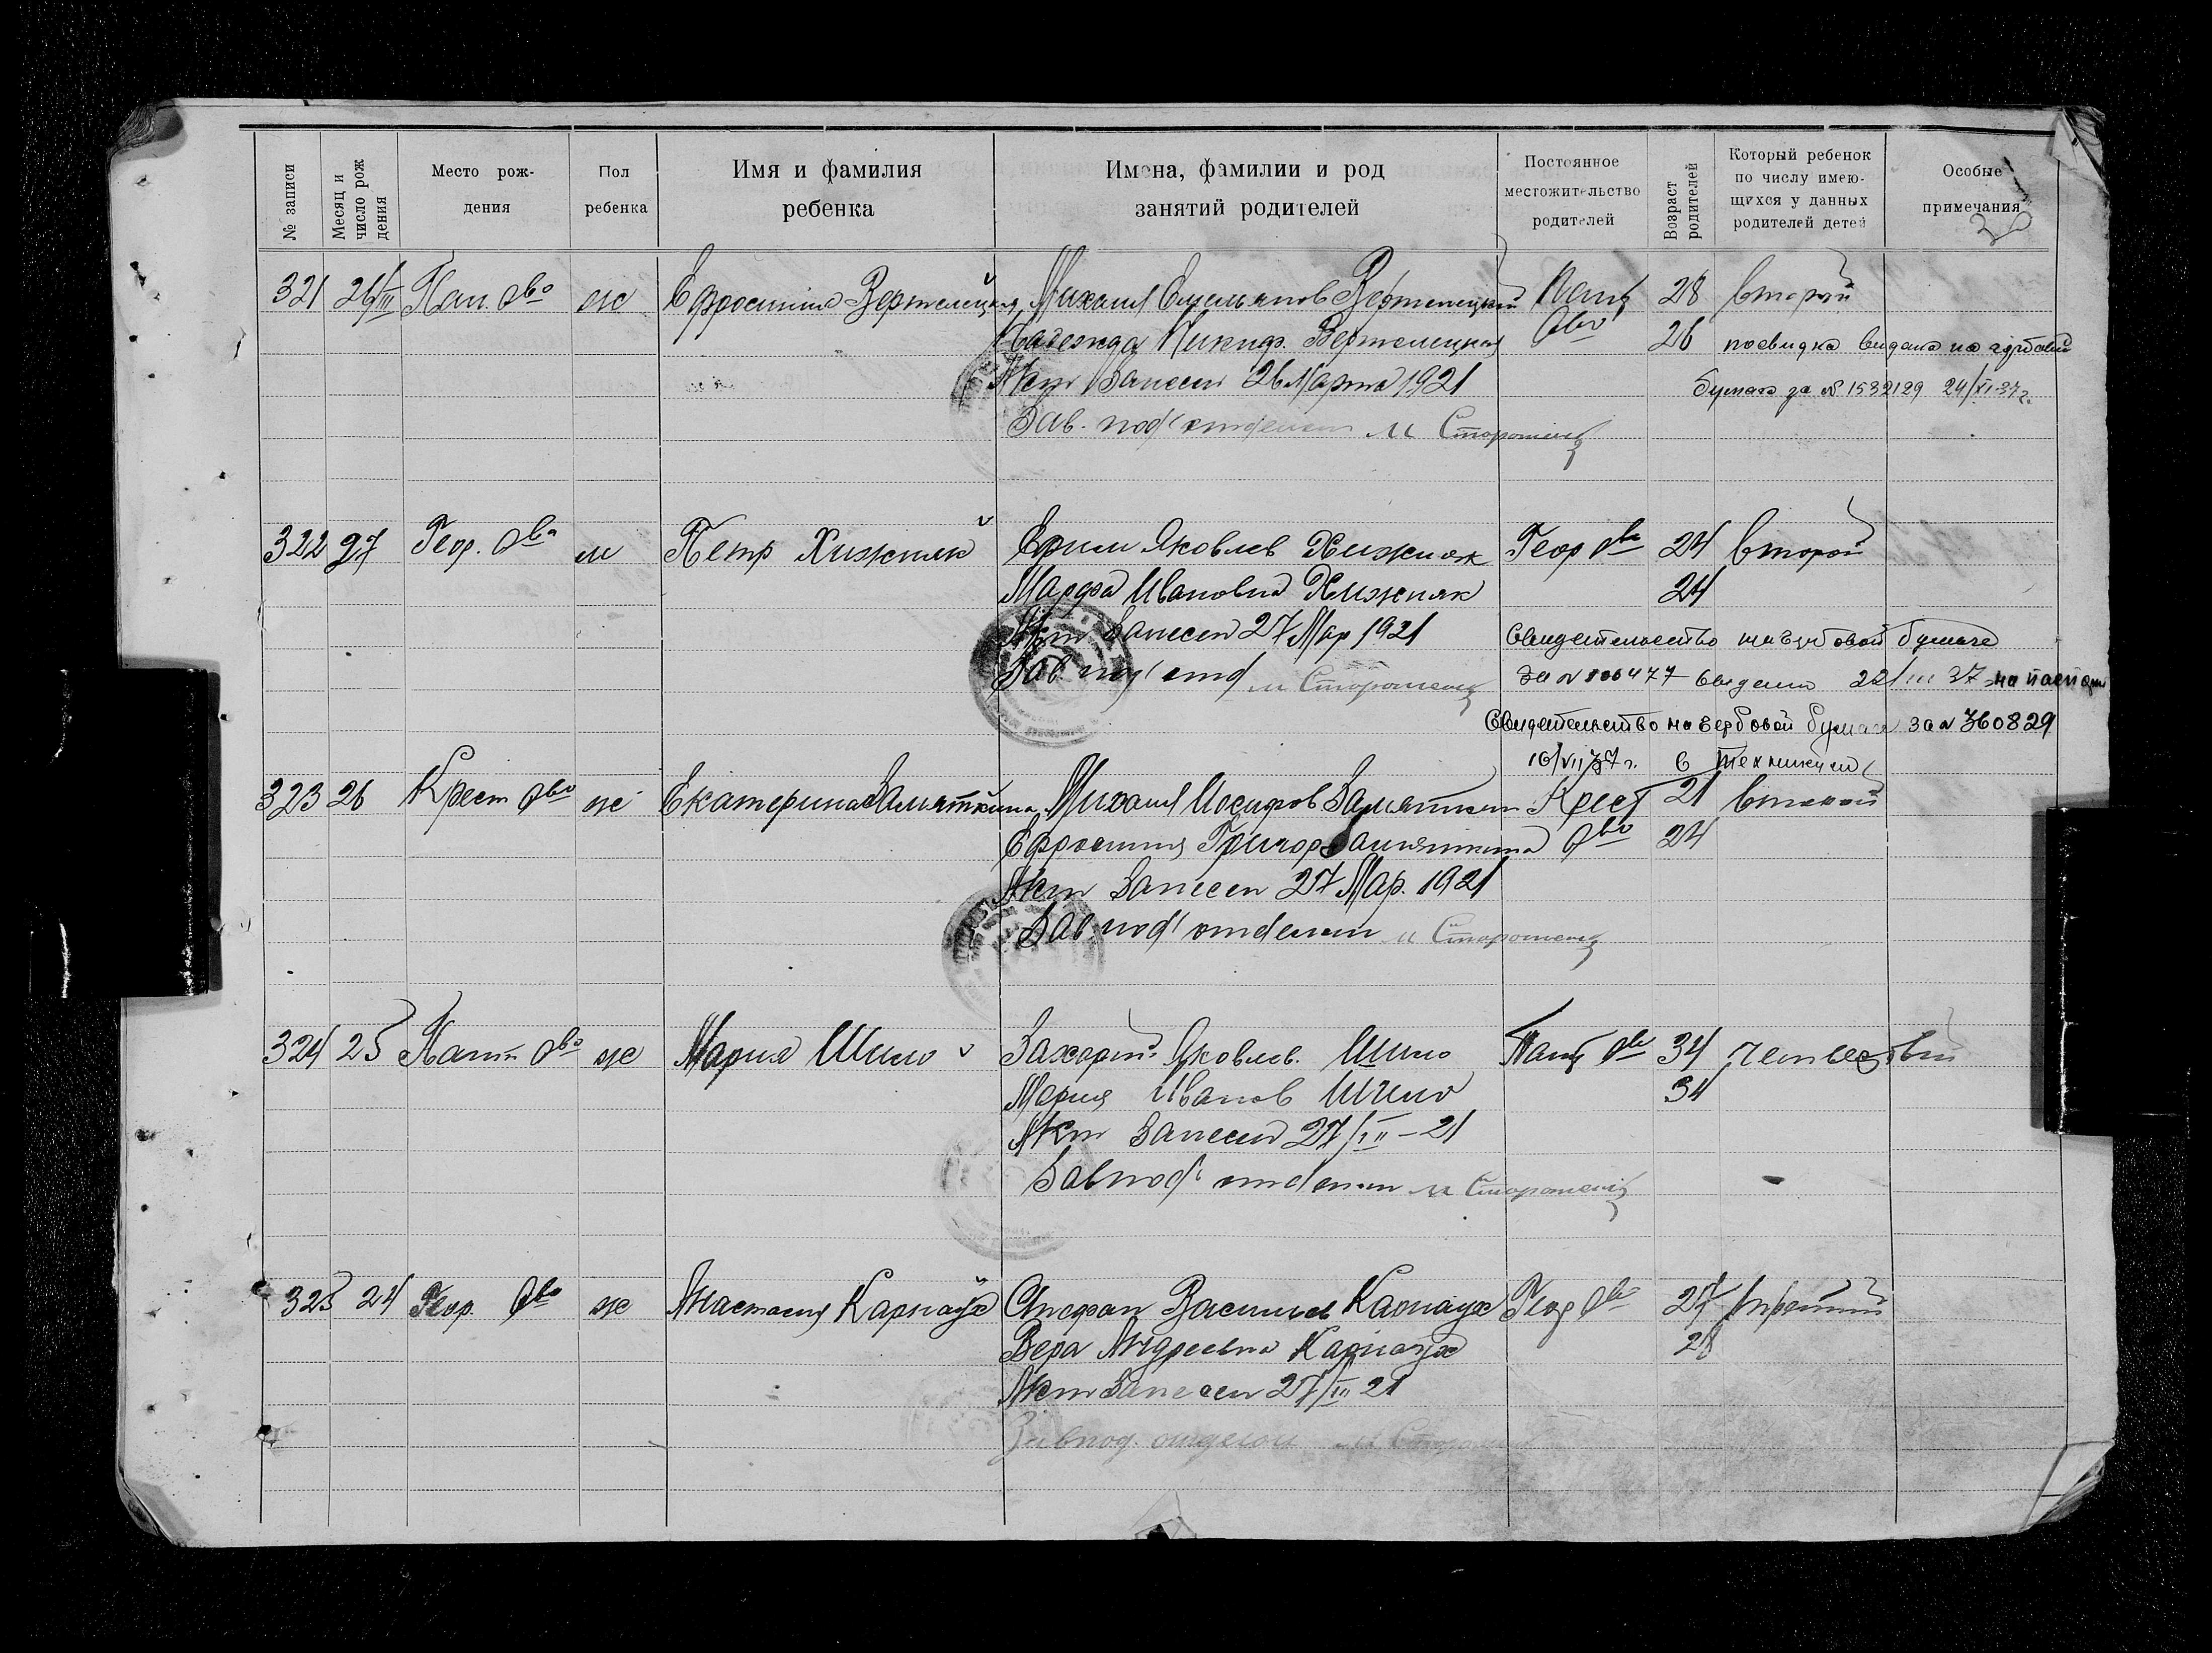 № записи
Месяц и число рождения
Место рождения
Пол ребенка
Имя и фамилия ребенка
Имена, фамилии и род занятий родителей
Постоянное местожительство родителей
Возраст родителей
Который ребенок по числу имеющихся у данных родителей детей
Особые примечания
321 26/III Пан. о-во ж Ефросиния Вертелецкая Михаил Емельянов Вертелецкий Пант 28 второй
Надежда Никиф. Вертелецкая о-во 26 посвидка видана на гербовій
Акт Занесен 26 Марта 1921 бумага за № 1532129 24/XI-37 г.
Зав. под'отделом М Сторошенко
322 27 Геор. о-во м Петр Хижняк Ефим Яковлев Хижняк Геор о-во 24 второй
Марфа Ивановна Хижняк 24
Акт Занесен 27 Мар 1921 Свидетельство на гербовой бумаге
Зав. под'отд М Сторошенко за № 800477 выдано 22/III 37 на паспорт
Свидетельство на гербовой бумаге за № 360829
16/VII 37 г. в техникум
323 26 Крест о-во ж Екатерина Замяткина Михаил Иосифов Замяткин Крест 21 второй
Ефросиния Григор Замяткина о-во 24
Акт Занесен 27 Мар. 1921
Зав под'отделом М Сторошенко
324 25 Пант о-во ж Мария Шило Захарий Яковлев. Шило Пант о-во 34 четвертый
Мария Иванов Шило 34
Акт Занесен 27/III-21
Завпод'отделом М Сторошенко
325 24 Геор. о-во ж Анастасия Карнаух Стефан Васильев Карнаух Геор о-во 27 третий
Вера Андреевна Карнаух 28
Акт Занесен 27/III 21
Завпод. отделом М Сторошенко